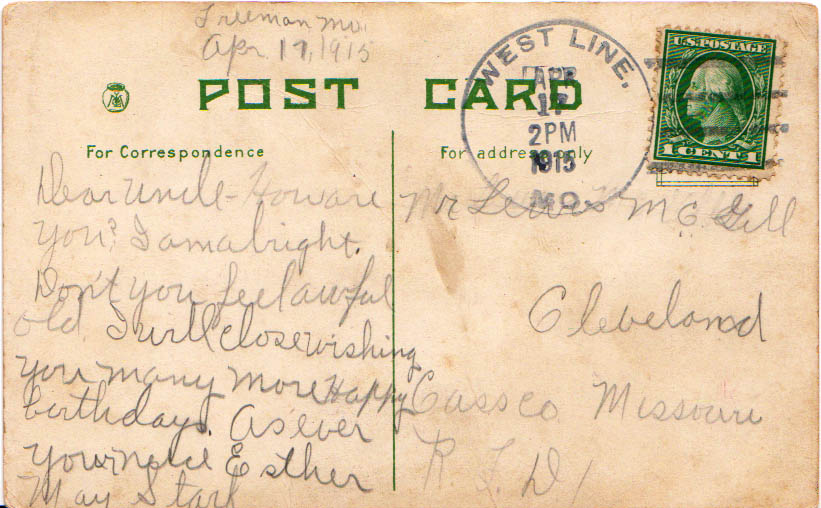 Freeman Mo.
Apr. 17, 1915
POST CARD
For Correspondence
For address only
WEST LINE,
APR
17
2PM
1915
MO.
U.S. POSTAGE
1 CENT 1
Dear Uncle - How are
you? I am alright.
Don't you feel awful
old. I will close wishing
you many more Happy
birthdays. As ever
your niece Esther
May Stark
Mr Lewis McGill
Cleveland
Cass co Missouri
R. F. D 1